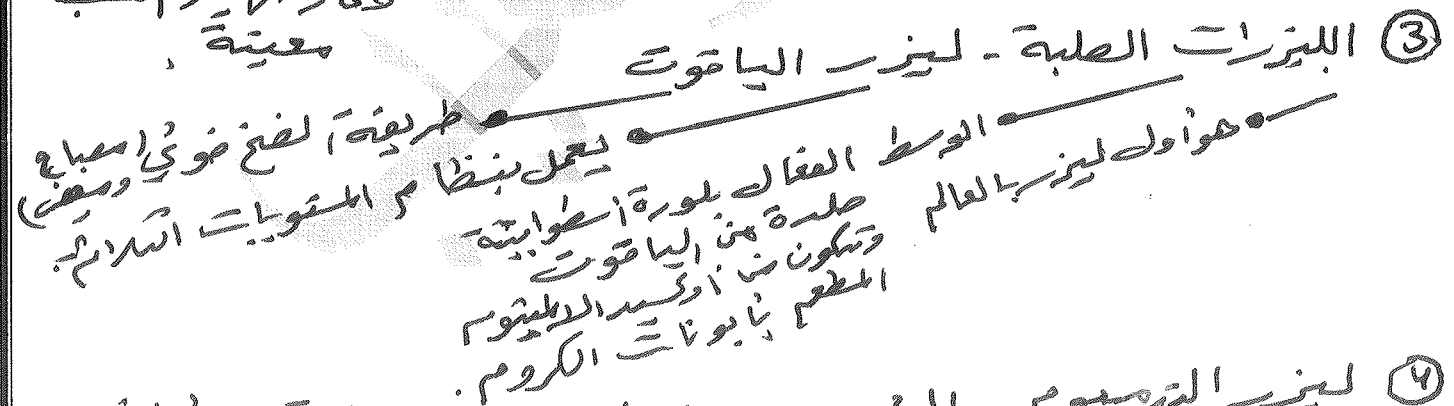 معينة.
③ الليزرات الصلبة - ليزر الياقوت
• هو أول ليزر بالعالم
• الوسط الفعال بلورة أسطوانية
صلدة من الياقوت
وتتكون من أوكسيد الالمنيوم
المطعم بأيونات الكروم.
• يعمل بنظام المستويات الثلاثة.
• طريقة الضخ ضوئي (مصباح وميضي)
④ ليزر